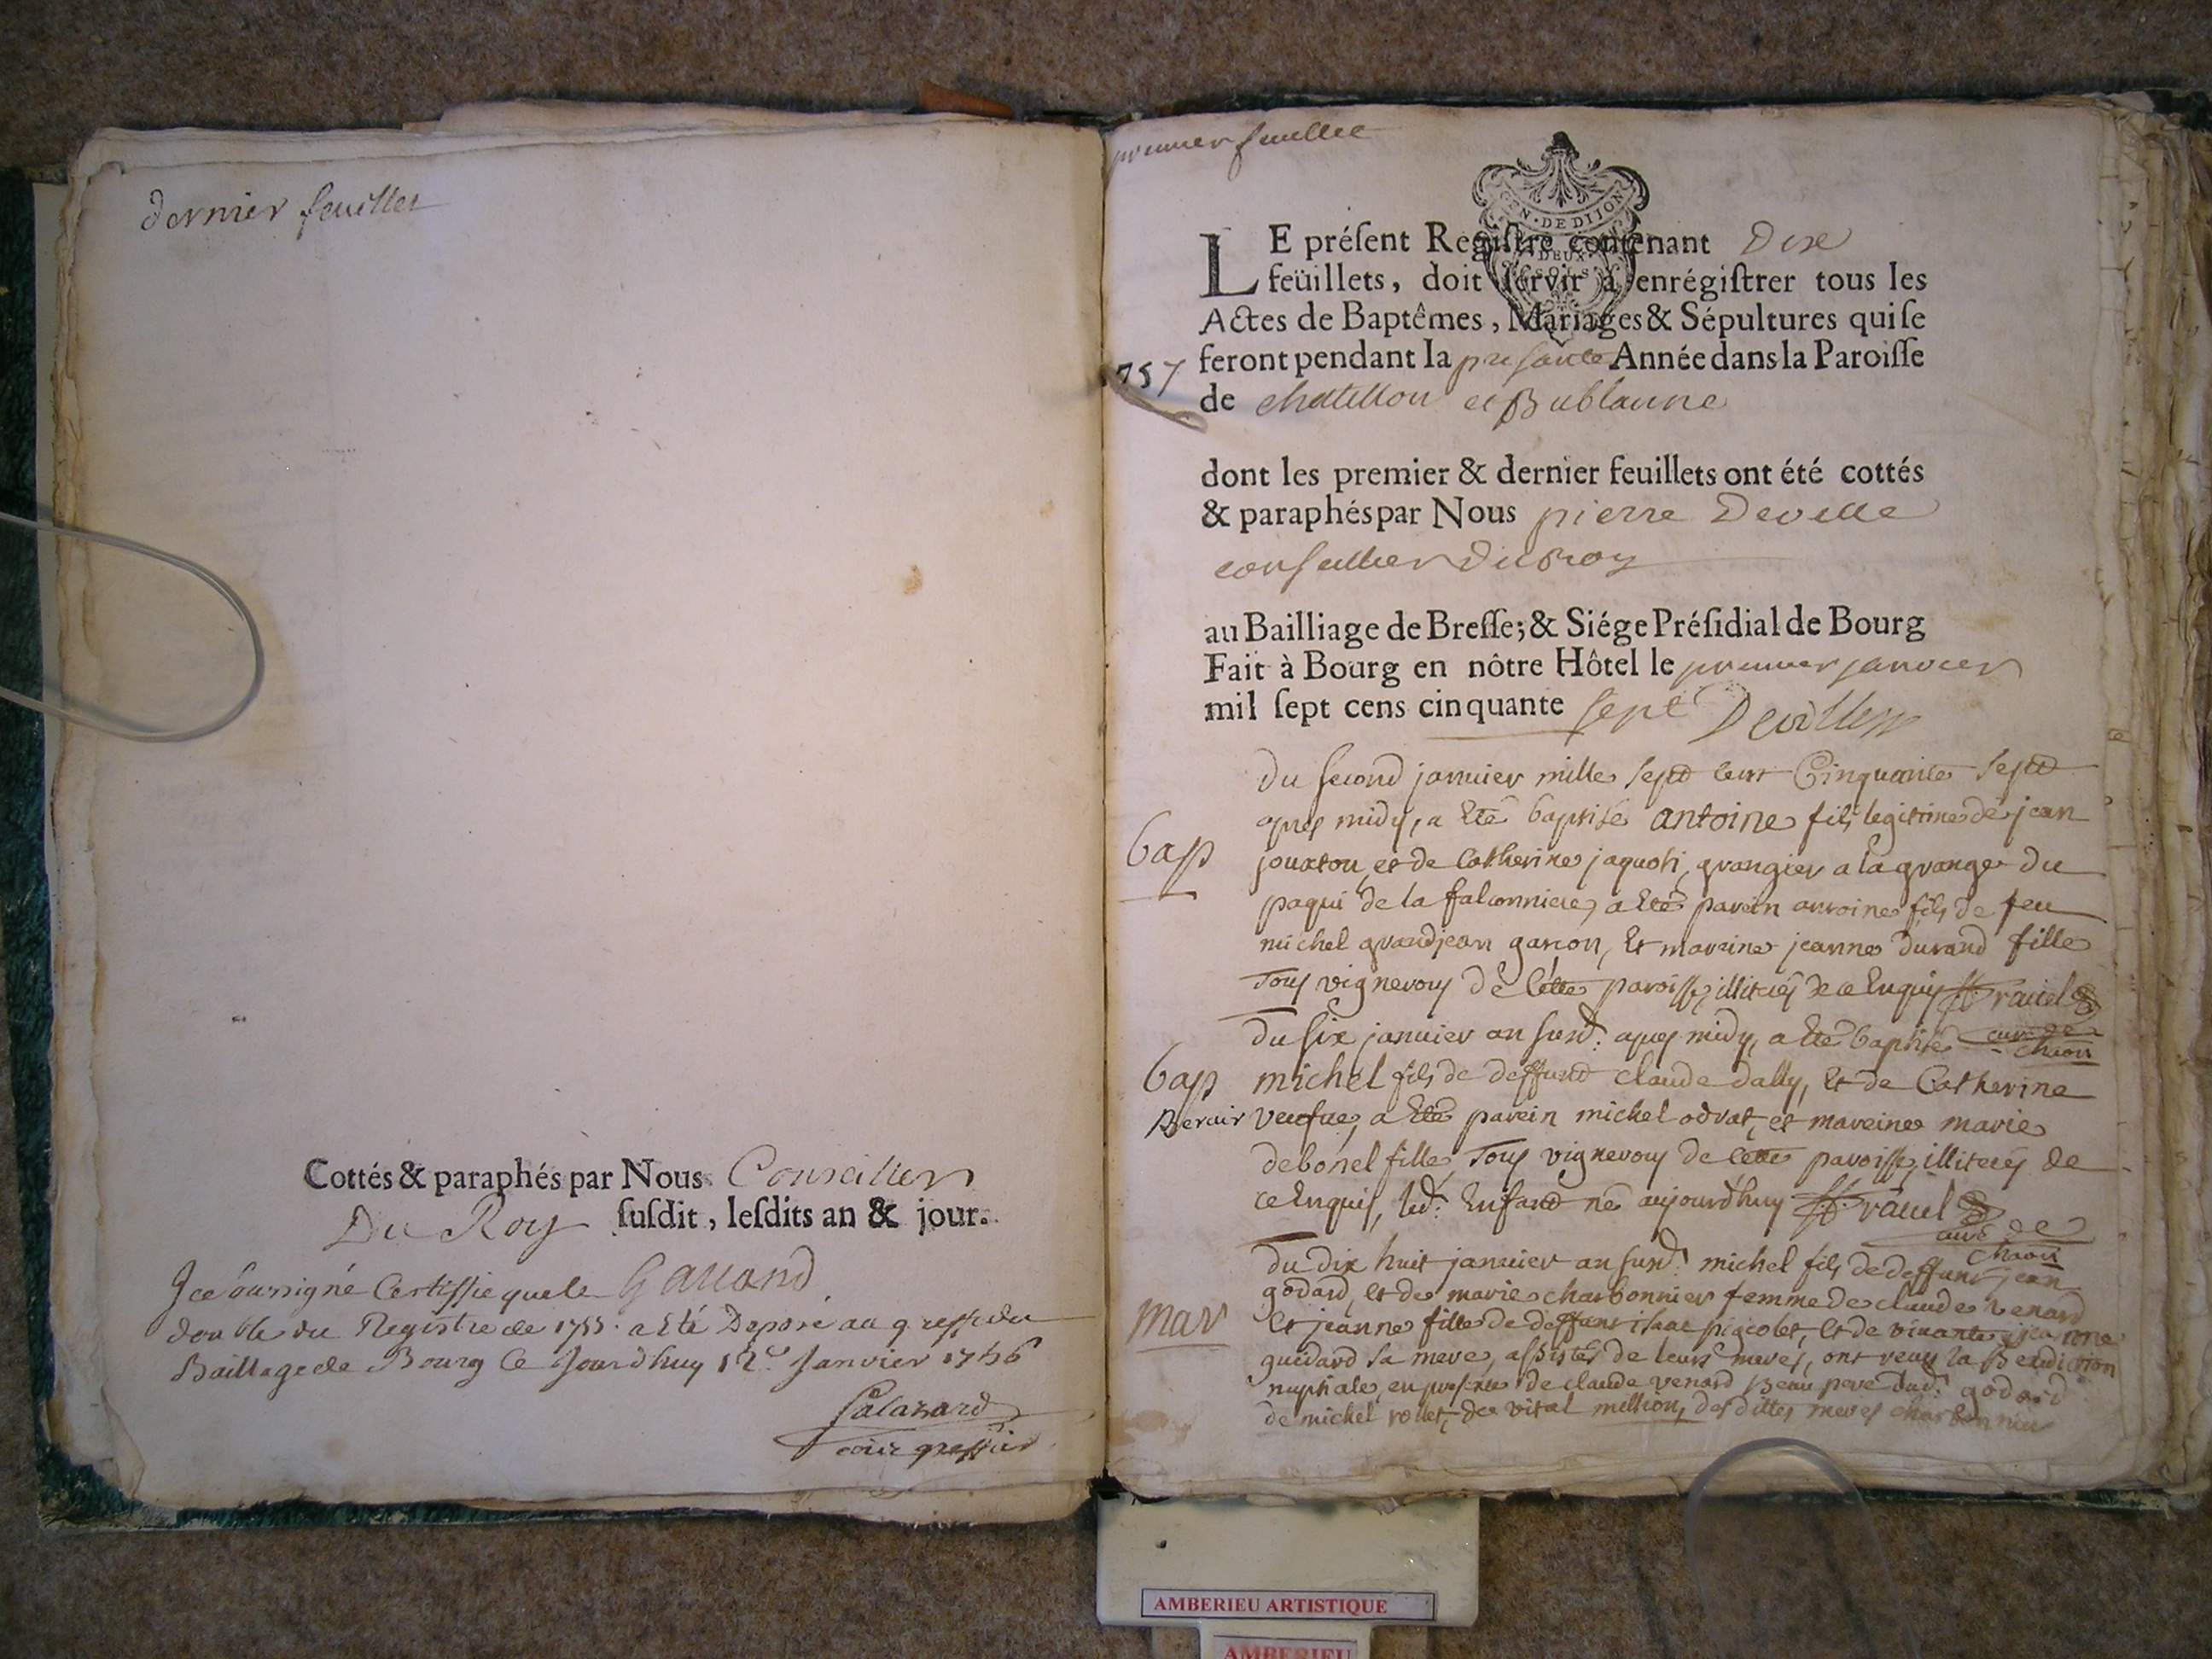 dernier feuillet
Cottés & paraphés par Nous Conseiller
Du Roy susdit, lesdits an & jour.
Gauand
Je soussigné Certiffie que le
double du Registre de 1755 a Eté Deposé au greffe du
Baillage de Bourg ce Jourdhuy 12e Janvier 1756
Salazard
premier feuillet
GEN. DE DIJON
DEUX
SOLS
LE présent Registre contenant Dix
feüillets, doit servir à enrégistrer tous les
Actes de Baptêmes, Mariages & Sépultures qui se
feront pendant la presante Année dans la Paroisse
757
de chatillon et Bublanne
dont les premier & dernier feuillets ont été cottés
& paraphés par Nous pierre Deville
conseiller du Roy
au Bailliage de Bresse; & Siége Présidial de Bourg
Fait à Bourg en nôtre Hôtel le premier janvier
mil sept cens cinquante sept Deville
Du second januier mille sept cent Cinquante sept
apres midy, a Eté baptisé antoine fils legitime de jean
bap
jouxtou, et de Catherine jaquoti, grangier a la grange du
paqui de la falconniere, a Eté parein antoine fils de feu
michel grandjean garcon, Et mareine jeanne durand fille
Tous vignerons de Cette paroisse, illiterés de ce Enquis rauel
curé de
chaon
du six januier an susd: apres midy, a Eté baptisé
bap
michel fils de deffunt claude dally, Et de Catherine
Berair
veufue, a Eté parein michel odrat, et mareine marie
debonel fille, Tous vignerons de Cette paroisse, illiterés de
ce Enquis, led: Enfant né aujourdhuy rauel
curé de
chaon
du dix huit januier an susd: michel fils de deffunt jean
godard, Et de marie charbonnier femme de claude venard
mar
Et jeanne fille de deffunt isaac pigeolet, Et de viuante jeanne
guedard sa mere, assistés de leurs meres, ont receu la Benediction
nuptiale, en presence de claude venard Beau pere dud: godard
de michel rollet, de vital million, des dittes meres charbonnier
AMBERIEU ARTISTIQUE
AMBERIEU